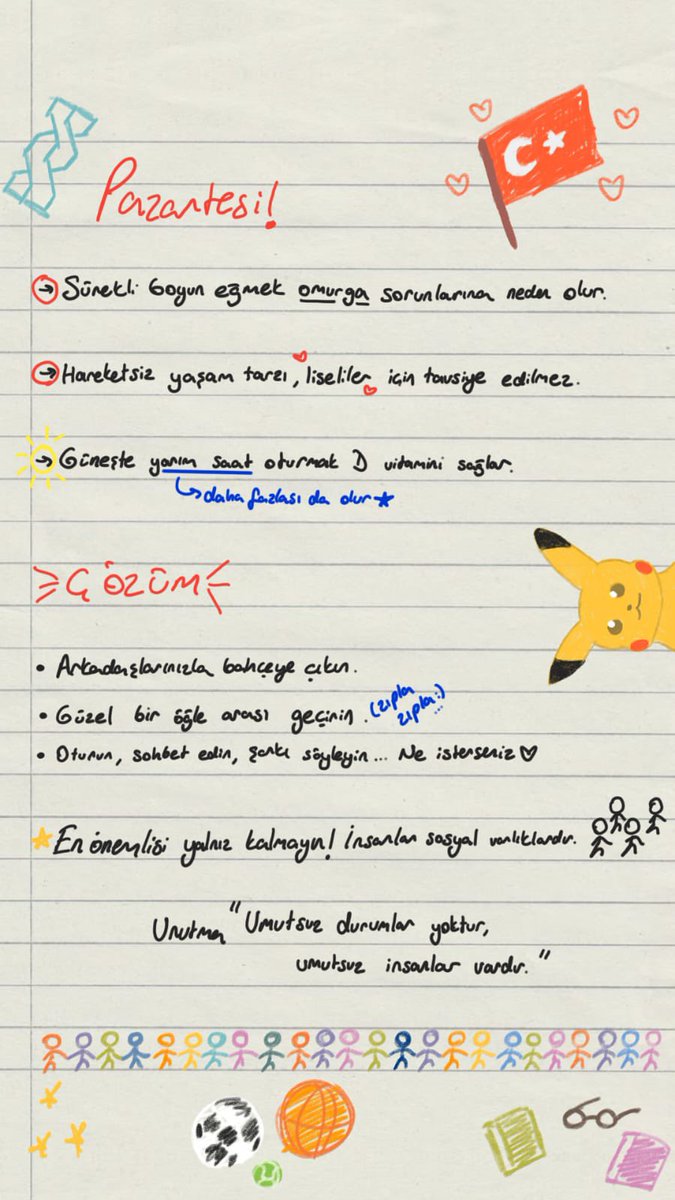 Pazartesi!
→ Sürekli boyun eğmek omurga sorunlarına neden olur.
→ Hareketsiz yaşam tarzı, liseliler için tavsiye edilmez.
→ Güneşte yarım saat oturmak D vitamini sağlar.
daha fazlası da olur
ÇÖZÜM
• Arkadaşlarınızla bahçeye çıkın.
• Güzel bir öğle arası geçirin. (zıpla zıpla :)...
• Oturun, sohbet edin, şarkı söyleyin... Ne isterseniz ♡
En önemlisi yalnız kalmayın! İnsanlar sosyal varlıklardır.
Unutma "Umutsuz durumlar yoktur,
umutsuz insanlar vardır."